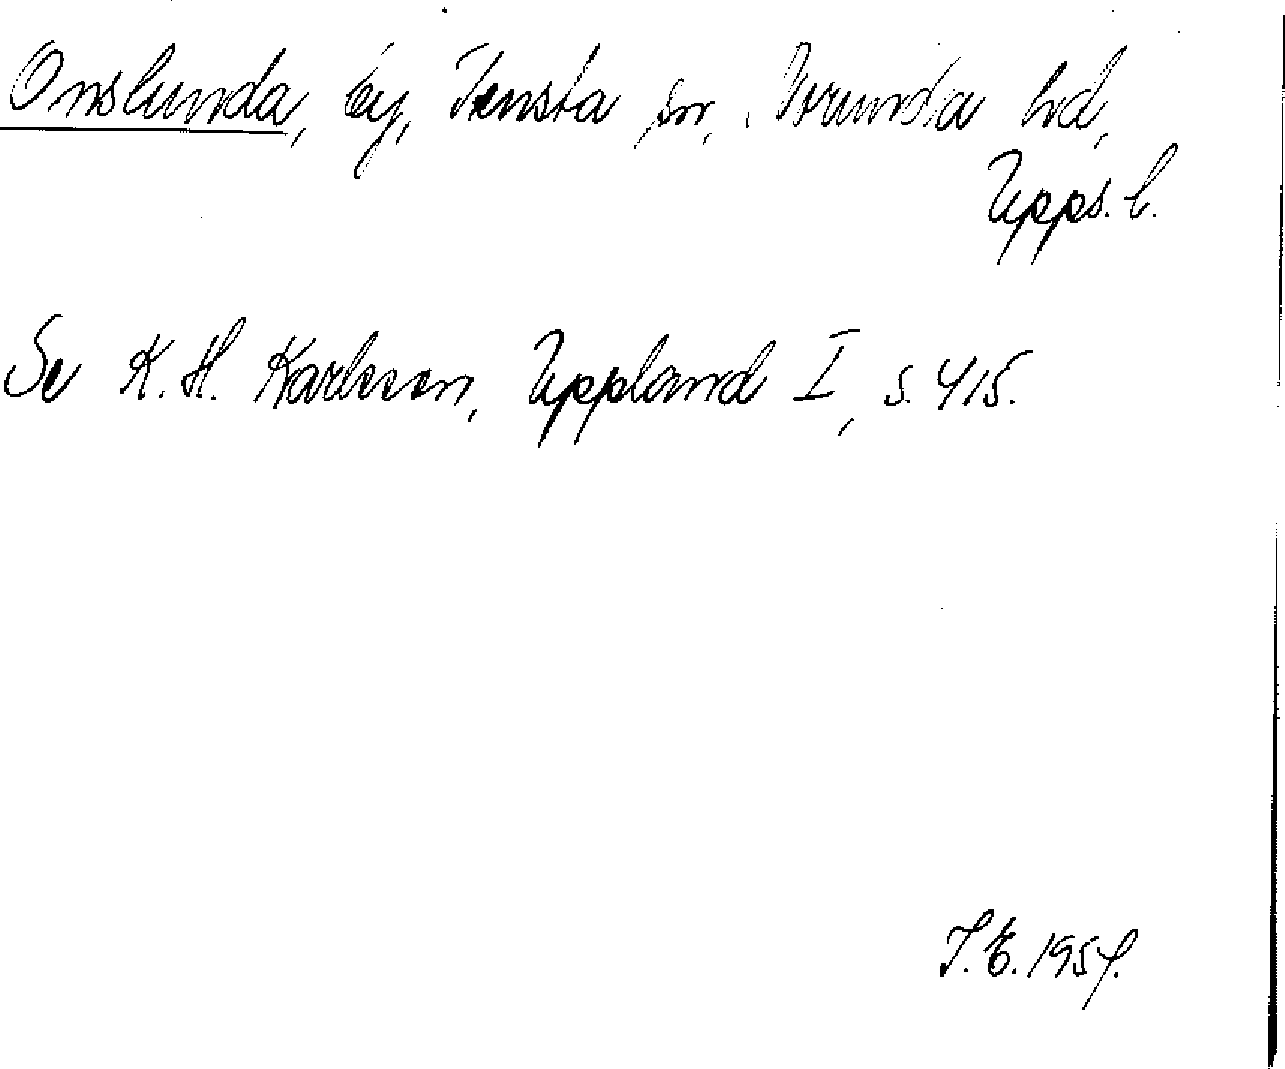 Onslunda, by, Tensta sn, Norunda hd,
Upps. l.
Se K. H. Karlsson, Uppland I, s. 415.
T. E. 1954.